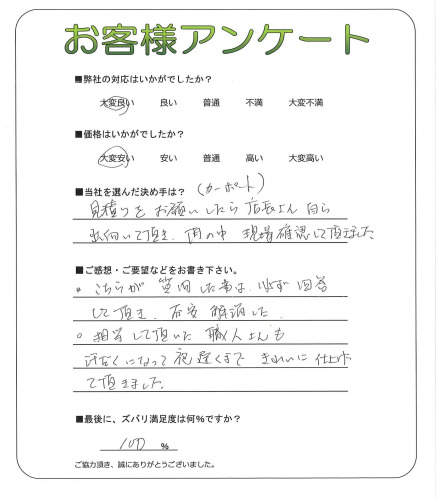 お客様アンケート
■弊社の対応はいかがでしたか？
大変良い 良い 普通 不満 大変不満
■価格はいかがでしたか？
大変安い 安い 普通 高い 大変高い
■当社を選んだ決め手は？ (カーポート)
見積りをお願いしたら店長さん自ら
出向いて頂き、雨の中 現場確認して頂きました
■ご感想・ご要望などをお書き下さい。
。こちらが 質問した事は 必ず 回答
して頂き、不安 解消した.
。担当して頂いた 職人さんも
汗だくになって 夜遅くまで きれいに 仕上げ
て頂きました.
■最後に、ズバリ満足度は何%ですか？
100 %
ご協力頂き、誠にありがとうございました。